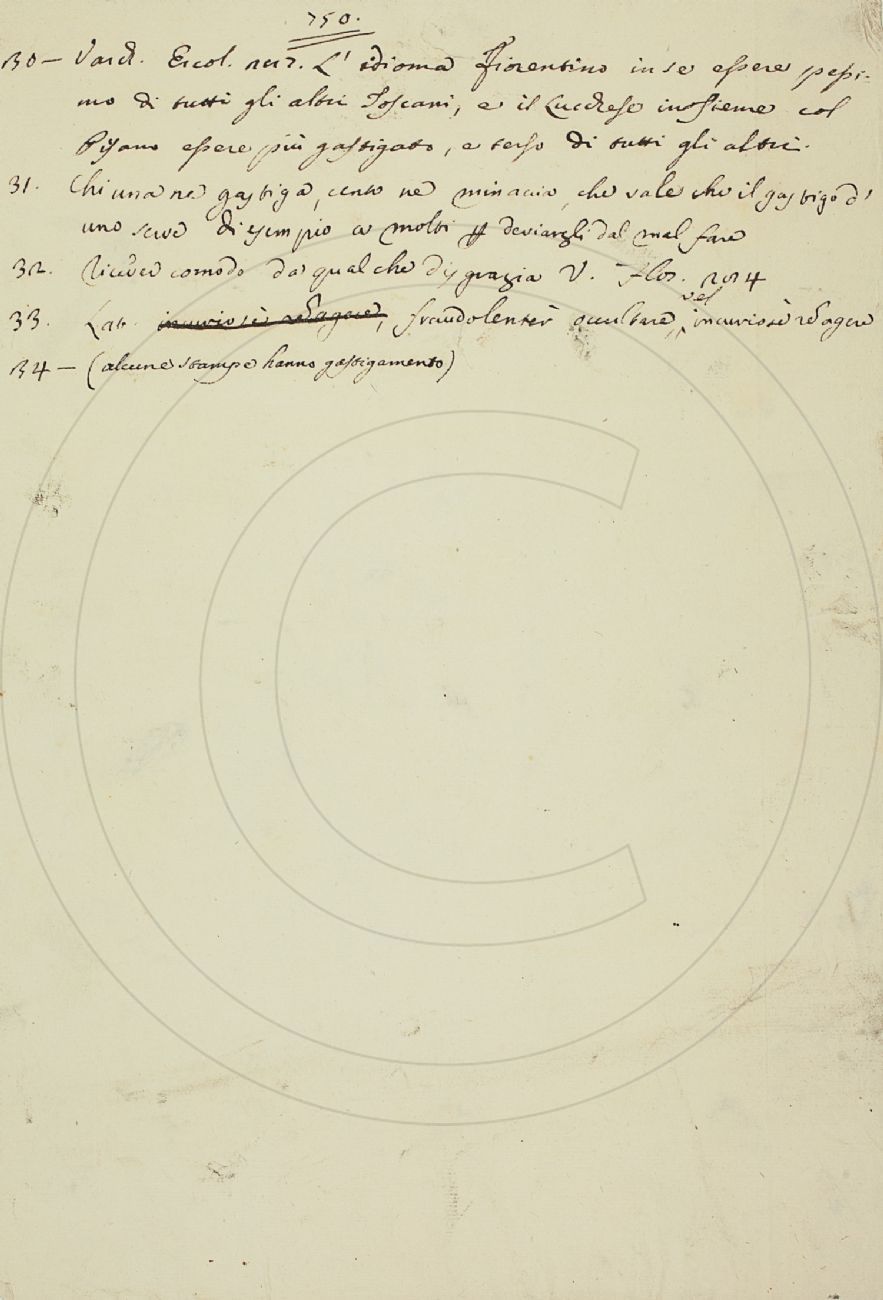 750.
30 – Varch. Ercol. 217. L' idioma fiorentino in se essere pessi-
mo di tutti gli altri Toscani, e il Lucchese insieme col
Pisano essere più gastigato, e terso di tutti gli altri.
31. Chi una ne gastiga, cento ne minacia, che vale che il gastigo d'
uno serve di esempio a molti p deviargli dal mal fare
32. Ricever comodo da qualche disgrazia V. Flos. 224
33. Lat. incuriosè redagere, fraudolenter occultare, vel incuriosè redagere
34 – (alcune stampe hanno gastigamento)